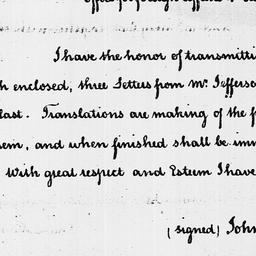 I have the honor of transmitti
h enclosed, three Letters from Mr. Jefferso
last. Translations are making of the f
em, and when finished shall be imm
With great respect and Esteem I have
(signed) John